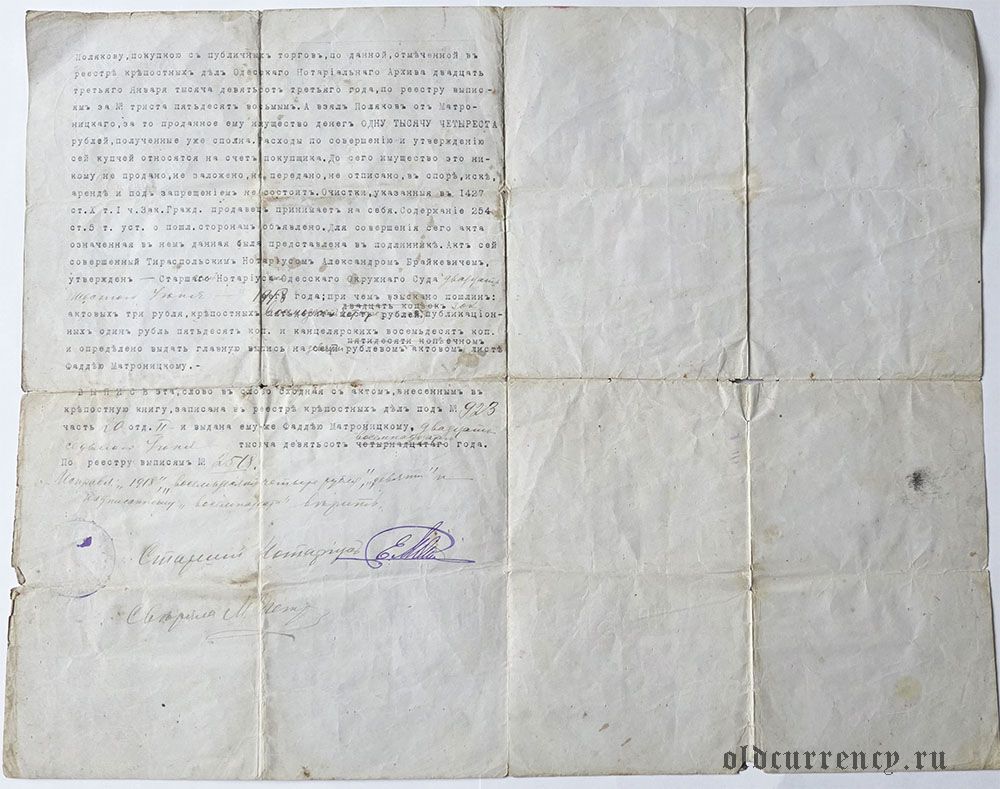 Молякову,покупкою съ публичныхъ торговъ,по данной,отмѣченной въ
реестрѣ крѣпостныхъ дѣлъ Одесскаго Нотаріальнаго Архива двадцать
третьяго Января тысяча девятьсотъ третьяго года,по реестру выпис-
ямъ за № триста пятьдесятъ восьмымъ.А взялъ Поляковъ отъ Матро-
ницкаго,за то проданное ему имущество денегъ ОДНУ ТЫСЯЧУ ЧЕТЫРЕСТА
рублей,полученные уже сполна.Расходы по совершенію и утвержденію
сей купчей относятся на счетъ покупщика.До сего имущество это ни-
кому не продано,не заложено,не передано,не отписано,въ спорѣ,искѣ,
арендѣ и подъ запрещеніемъ не состоитъ.Очистки,указанныя въ 1427
ст.X т.I ч.Зак.Гражд. продавецъ принимаетъ на себя.Содержаніе 254
ст.5 т. уст. о пошл.сторонамъ объявлено.Для совершенія сего акта
означенная въ немъ данная была представлена въ подлинникѣ.Актъ сей
совершенный Тираспольскимъ Нотаріусомъ Александромъ Брайкевичемъ,
утвержденъ — Старшимъ Нотаріусомъ Одесскаго Окружнаго Суда двадцать
Іюня — 1918 года;при чемъ взыскано пошлинъ:
двадцать копѣекъ
актовыхъ три рубля,крѣпостныхъ рублей,публикаціон-
ныхъ одинъ рубль пятьдесятъ коп. и канцелярскихъ восемьдесятъ коп.
пятидесяти копѣечномъ
и опредѣлено выдать главную выпись на рублевомъ актовомъ листѣ
Фаддѣю Матроницкому.-
ВЫПИСЬ эта,слово въ слово сходная съ актомъ,внесеннымъ въ
крѣпостную книгу,записана въ реестрѣ крѣпостныхъ дѣлъ подъ № 923
часть 20 отд. II и выдана ему-же Фаддѣю Матроницкому, двадцать
седьмого Іюня тысяча девятьсотъ четырнадцатаго года.
восемнадцатаго
По реестру выписямъ №
"1918" четыре "девять" и
вѣрить.
Старшій Нотаріусъ
Свѣряла М.
oldcurrency.ru